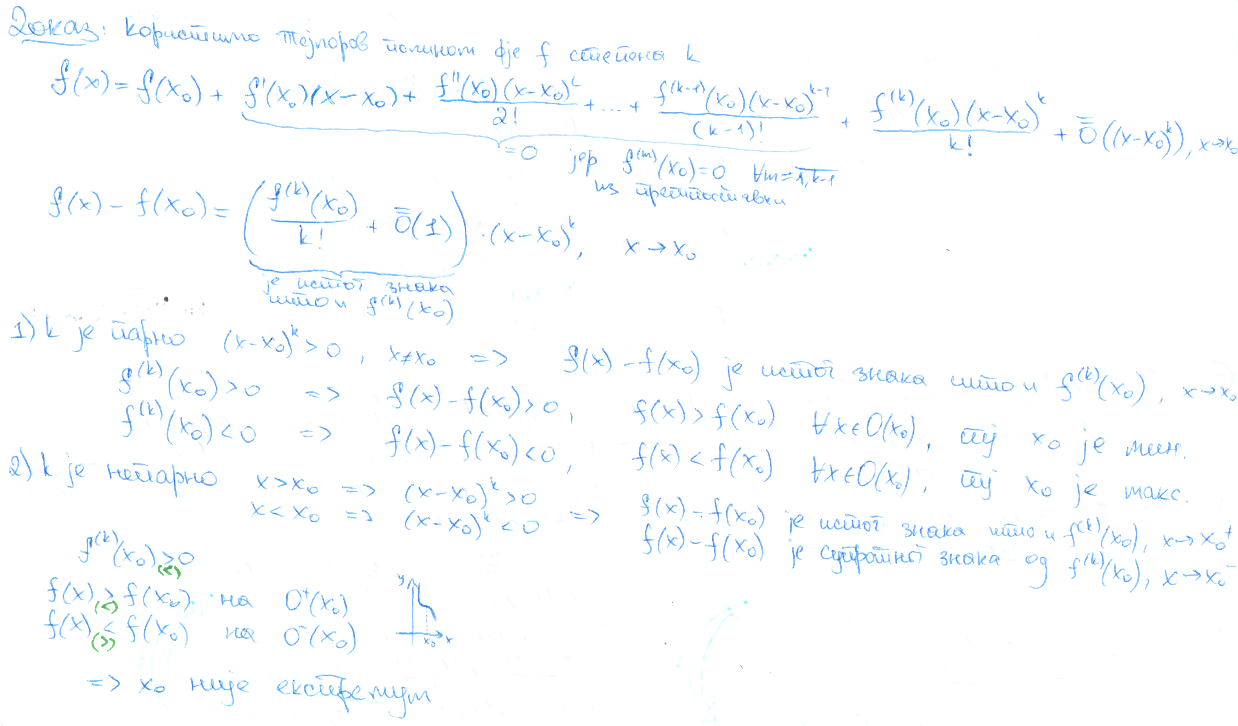 Доказ: Користимо Тејлоров полином фје f степена k
f(x) = f(x₀) + f'(x₀)(x-x₀) + f''(x₀)(x-x₀)²/2! + ... + f^(k-1)(x₀)(x-x₀)^(k-1)/(k-1)! + f^(k)(x₀)(x-x₀)^k/k! + ō̄((x-x₀)^k), x→x₀
=0 јер f^(m)(x₀)=0 ∀m=1,k-1
из претпоставки
f(x) - f(x₀) = (f^(k)(x₀)/k! + ō̄(1)) · (x-x₀)^k, x→x₀
је истог знака
што и f^(k)(x₀)
1) k је парно (x-x₀)^k > 0, x≠x₀ => f(x) - f(x₀) је истог знака што и f^(k)(x₀), x→x₀
f^(k)(x₀)>0 => f(x)-f(x₀)>0, f(x)>f(x₀) ∀x∈O(x₀), тј x₀ је мин.
f^(k)(x₀)<0 => f(x)-f(x₀)<0, f(x)<f(x₀) ∀x∈O(x₀), тј x₀ је макс.
2) k је непарно x>x₀ => (x-x₀)^k>0
x<x₀ => (x-x₀)^k<0 => f(x)-f(x₀) је истог знака што и f^(k)(x₀), x→x₀⁺
f(x)-f(x₀) је супротног знака од f^(k)(x₀), x→x₀⁻
f^(k)(x₀)>0
(<)
f(x) > f(x₀) на O⁺(x₀)
(<)
f(x) < f(x₀) на O⁻(x₀)
(>)
y
x₀ x
=> x₀ није екстремум